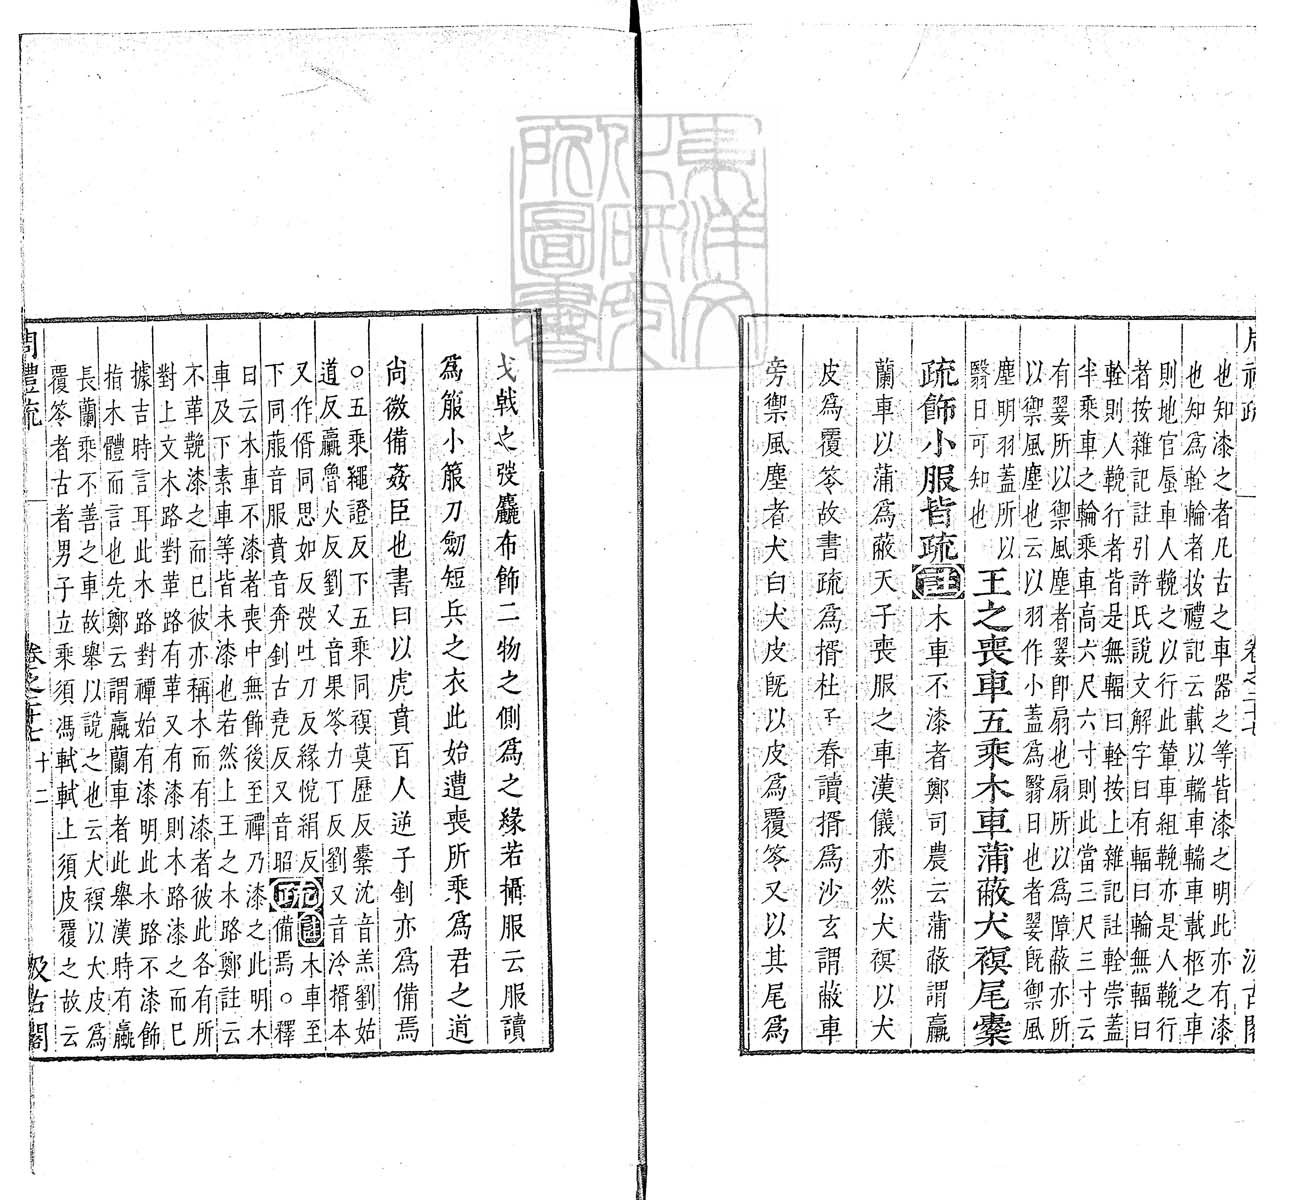 周禮疏
卷之二十七
汲古閣
也知漆之者凡古之車器之等皆漆之明此亦有漆
也知爲輇輪者按禮記云載以輲車輲車載柩之車
則地官蜃車人輓之以行此輦車組輓亦是人輓行
者按雜記註引許氏說文解字曰有輻曰輪無輻曰
輇則人輓行者皆是無輻曰輇按上雜記註輇崇蓋
半乘車之輪乘車高六尺六寸則此當三尺三寸云
有翣所以禦風塵者翣卽扇也扇所以爲障蔽亦所
以禦風塵也云以羽作小蓋爲翳日也者翣旣禦風
塵明羽蓋所以
翳日可知也
王之喪車五乘木車蒲蔽犬𧜀尾櫜
疏飾小服皆疏註木車不漆者鄭司農云蒲蔽謂臝
蘭車以蒲爲蔽天子喪服之車漢儀亦然犬𧜀以犬
皮爲覆笭故書疏爲揟杜子春讀揟爲沙玄謂蔽車
旁禦風塵者犬白犬皮旣以皮爲覆笭又以其尾爲
戈戟之弢麤布飾二物之側爲之緣若攝服云服讀
爲箙小箙刀劒短兵之衣此始遭喪所乘爲君之道
尚微備姦臣也書曰以虎賁百人逆子釗亦爲備焉
○五乘繩證反下五乘同𧜀莫歷反櫜沈音羔劉姑
道反臝魯火反劉又音果笭力丁反劉又音泠揟本
又作偦同思如反弢吐刀反緣悅絹反
下同菔音服賁音奔釗古堯反又音昭
疏註木車至
備焉○釋
曰云木車不漆者喪中無飾後至禫乃漆之此明木
車及下素車等皆未漆也若然上王之木路鄭註云
不革鞔漆之而已彼亦稱木而有漆者彼此各有所
對上文木路對革路有革又有漆則木路漆之而已
據吉時言耳此木路對禫始有漆明此木路不漆飾
指木體而言也先鄭云謂臝蘭車者此舉漢時有臝
長蘭乘不善之車故舉以說之也云犬𧜀以犬皮爲
覆笭者古者男子立乘須馮軾軾上須皮覆之故云
周禮疏
卷之二十七
十二
汲古閣
東洋文
化研究
所圖書